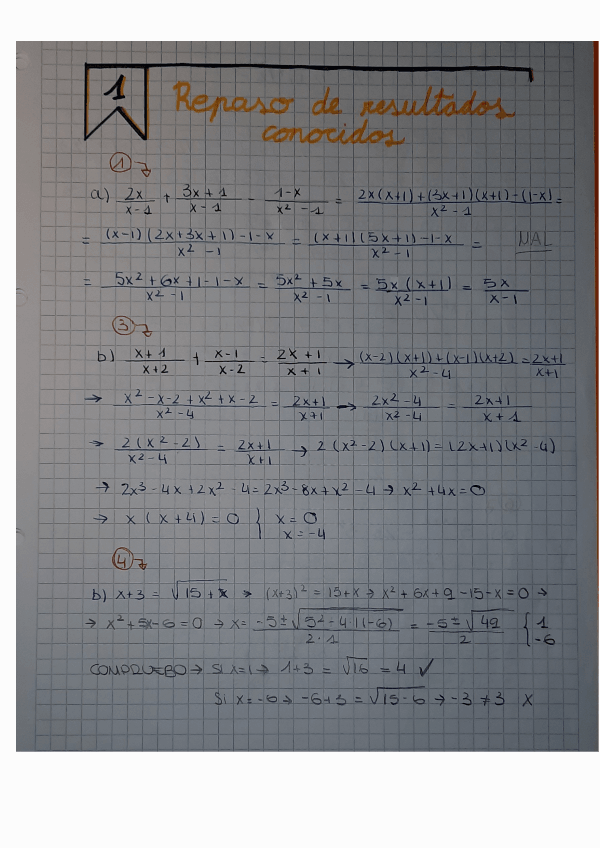 1
Repaso de resultados
conocidos
① ↴
a) 2x/(x-1) + (3x+1)/(x-1) - (1-x)/(x²-1) = (2x(x+1)+(3x+1)(x+1)-(1-x))/(x²-1) =
= ((x-1)(2x+3x+1)-1-x)/(x²-1) = ((x+1)(5x+1)-1-x)/(x²-1) = MAL
= (5x²+6x+1-1-x)/(x²-1) = (5x²+5x)/(x²-1) = (5x(x+1))/(x²-1) = 5x/(x-1)
③ ↴
b) (x+1)/(x+2) + (x-1)/(x-2) = (2x+1)/(x+1) → ((x-2)(x+1)+(x-1)(x+2))/(x²-4) = (2x+1)/(x+1)
→ (x²-x-2+x²+x-2)/(x²-4) = (2x+1)/(x+1) → (2x²-4)/(x²-4) = (2x+1)/(x+1)
→ (2(x²-2))/(x²-4) = (2x+1)/(x+1) → 2(x²-2)(x+1) = (2x+1)(x²-4)
→ 2x³-4x+2x²-4 = 2x³-8x+x²-4 → x²+4x=0
→ x(x+4)=0 } x=0
x=-4
④ ↴
b) x+3 = √(15+x) → (x+3)² = 15+x → x²+6x+9-15-x=0 →
→ x²+5x-6=0 → x= (-5±√(5²-4·1(-6)))/(2·1) = (-5±√49)/2 { 1
-6
COMPRUEBO → Si x=1 → 1+3 = √16 = 4 ✓
Si x=-6 → -6+3 = √(15-6) → -3≠3 X